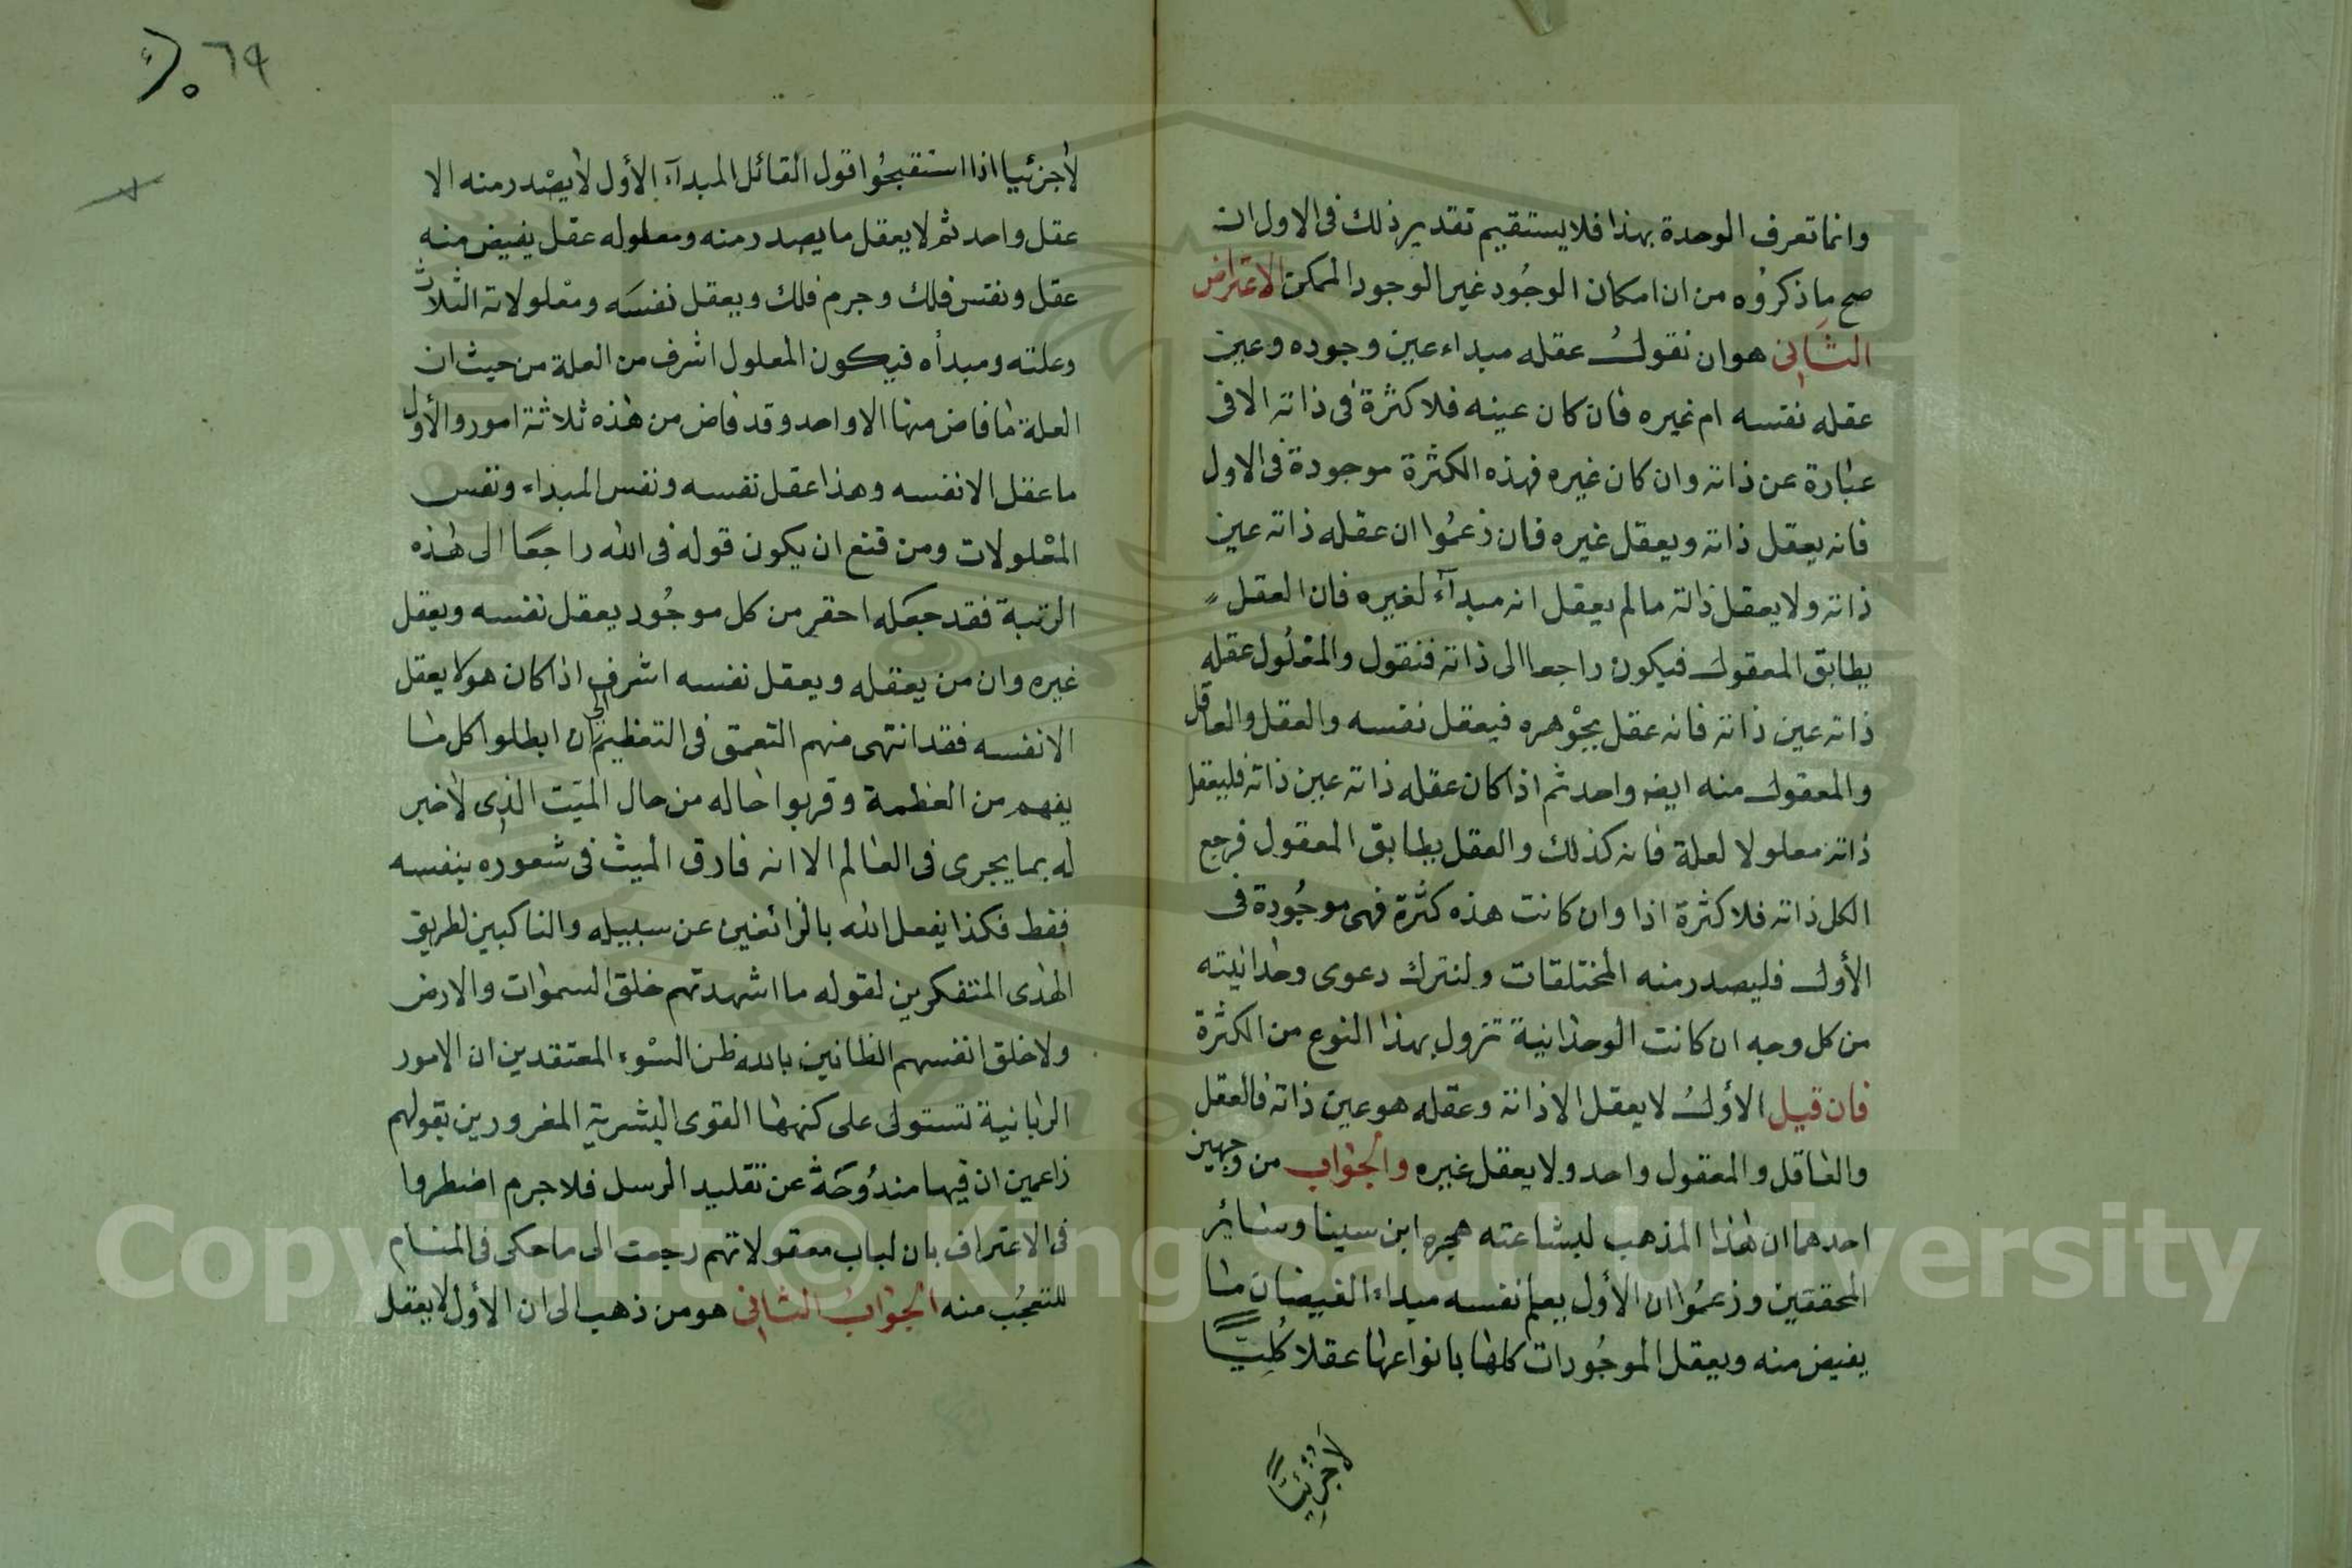 وانما تعرف الوحدة بهذا فلا يستقيم تقدير ذلك فى الاول ان
صح ما ذكروه من ان امكان الوجود غير الوجود الممكن الاعتراض
الثانى هو ان نقول عقله مبداء عين وجوده وعين
عقله نفسه ام غيره فان كان عينه فلا كثرة فى ذاته الا فى
عبارة عن ذاته وان كان غيره فهذه الكثرة موجودة فى الاول
فانه يعقل ذاته ويعقل غيره فان زعموا ان عقله ذاته عين
ذاته ولا يعقل ذاته ما لم يعقل انه مبدآء لغيره فان العقل
يطابق المعقول فيكون راجعا الى ذاته فنقول والمعلول عقله
ذاته عين ذاته فانه عقل بجوهره فيعقل نفسه والعقل والعاقل
والمعقول منه ايضا واحد ثم اذا كان عقله ذاته عين ذاته فليعقل
ذاته معلولا لعلة فانه كذلك والعقل يطابق المعقول فرجع
الكل ذاته فلا كثرة اذا وان كانت هذه كثرة فهى موجودة فى
الأول فليصدر منه المختلفات ولنترك دعوى وحدانيته
من كل وجه ان كانت الوحدانية تزول بهذا النوع من الكثرة
فان قيل الأول لا يعقل الا ذاته وعقله هو عين ذاته فالعقل
والعاقل والمعقول واحد ولا يعقل غيره والجواب من وجهين
احدهما ان هذا المذهب لبشاعته هجره ابن سينا وسائر
المحققين وزعموا ان الأول يعلم نفسه مبداء الفيضان ما
يفيض منه ويعقل الموجودات كلها بانواعها عقلا كُليّاً
لاجزئيّاً
٦٩
لاجزئيا اذا استقبحُوا قول القائل المبدآء الأول لا يصدر منه الا
عقل واحد ثم لا يعقل ما يصدر منه ومعلوله عقل يفيض منه
عقل ونفس فلك وجرم فلك ويعقل نفسَه ومعلولاته الثلاث
وعلته ومبدأه فيكون المعلول اشرف من العلة من حيث ان
العلة ما فاض منها الا واحد وقد فاض من هذه ثلاثة امور والأول
ما عقل الا نفسه وهذا عقل نفسه ونفس المبداء ونفس
المعلولات ومن قنع ان يكون قوله فى الله راجعًا الى هذه
الرتبة فقد جعَله احقر من كل موجُود يعقل نفسه ويعقل
غيره وان من يعقله ويعقل نفسه اشرف اذا كان هو لا يعقل
الا نفسه فقد انتهى منهم التعمق فى التعظيم الى ان ابطلوا كل ما
يفهم من العظمة وقربوا حاله من حال الميّت الذى لا خبر
له بما يجرى فى العالم الا انه فارق الميث فى شعوره بنفسه
فقط فكذا يفعل الله بالزائغين عن سبيله والناكبين لطريق
الهدى المتفكرين لقوله ما اشهدتهم خلق السموات والارض
ولا خلق انفسهم الظانين بالله ظن السّوء المعتقدين ان الامور
الربانية تستولى على كنهها القوى البشرية المغرورين بقولهم
زاعمين ان فيها مندُوحَة عن تقليد الرسل فلا جرم اضطروا
فى الاعتراف بان لباب معقولاتهم رجعت الى ما حكى فى المنام
للتعجُب منه الجواب الثانى هو من ذهب الى ان الأول لا يعقل
Copyright © King Saud University